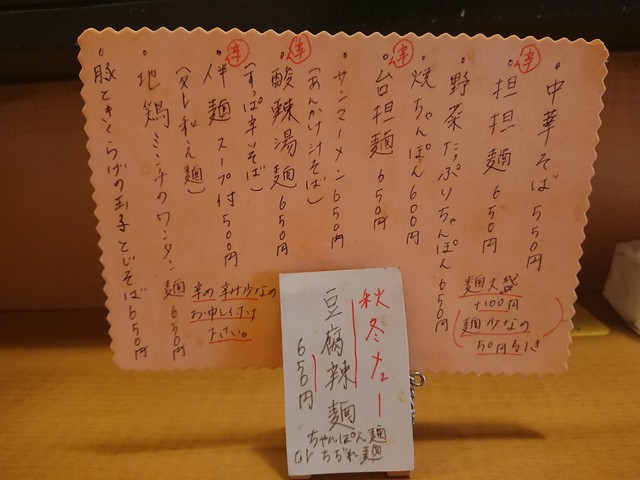 中華そば 550円
辛
担担麺 650円
野菜たっぷりちゃんぽん 650円
焼ちゃんぽん 600円
辛
台担麺 650円
サンマーメン 650円
(あんかけ汁そば)
辛
酸辣湯麺 650円
(すっぱ辛いそば)
辛
伴麺 スープ付 550円
(タレ和え麺)
地鶏ミンチのワンタン麺 650円
豚ときくらげの玉子とじそば 650円
麺大盛
+100円
(麺少なめ
50円引き)
辛め 辛け少なめ
お申しつけ
下さい。
秋冬メニュー
豆腐辣麺
650円
ちゃんぽん麺
or ちぢれ麺